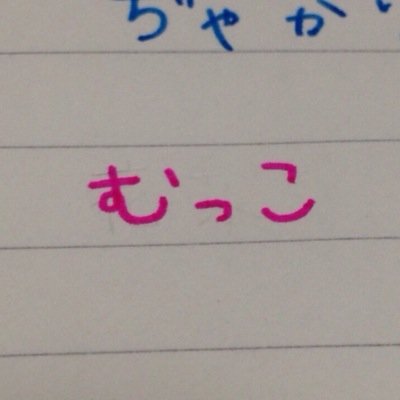 じゃが
むっこ